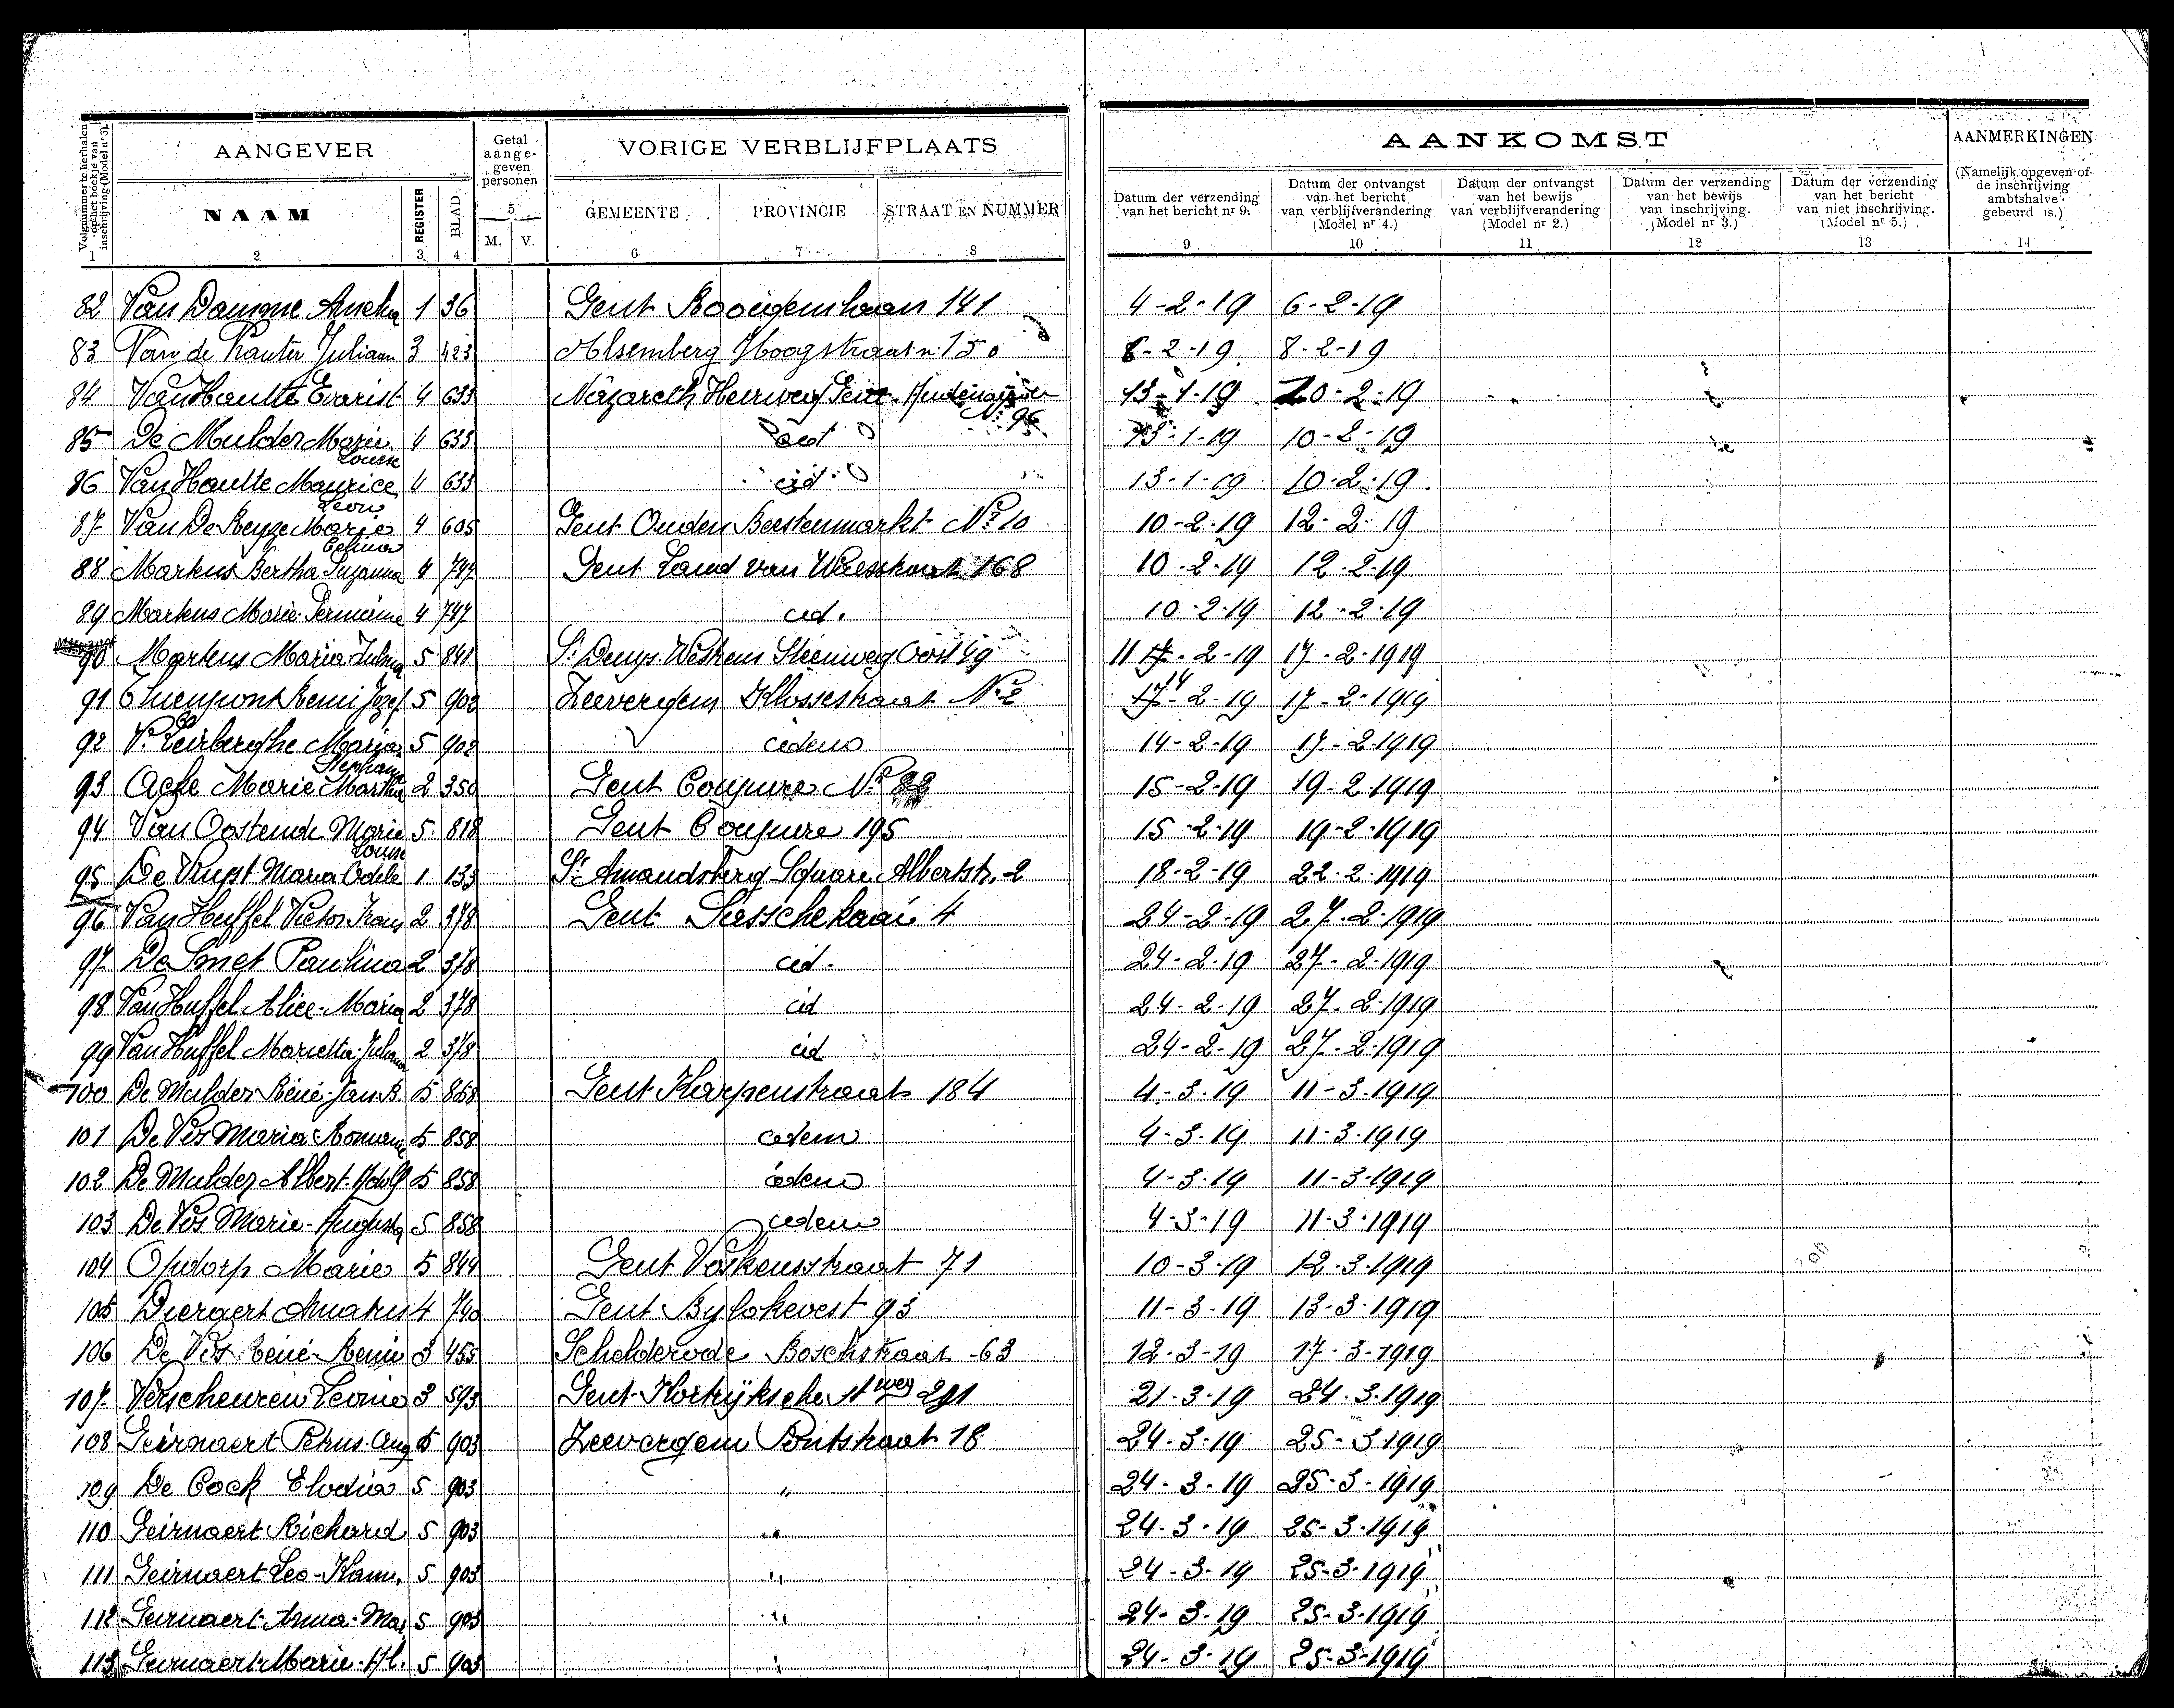 Volgnummer te herhalen op het boekje van inschrijving (Model nr 3).
AANGEVER
Getal aange-geven personen
VORIGE VERBLIJFPLAATS
AANKOMST
AANMERKINGEN
NAAM REGISTER BLAD
5 M. V.
GEMEENTE PROVINCIE STRAAT EN NUMMER
Datum der verzending van het bericht nr 9.
Datum der ontvangst van het bericht van verblijfverandering (Model nr 4.)
Datum der ontvangst van het bewijs van verblijfverandering (Model nr 2.)
Datum der verzending van het bewijs van inschrijving. (Model nr 3.)
Datum der verzending van het bericht van niet inschrijving. (Model nr 5.)
(Namelijk opgeven of de inschrijving ambtshalve gebeurd is.)
1 2 3 4 6 7 8 9 10 11 12 13 14
82 Van Damme 1 36 Gent Rooigemlaan 141 4-2-19 6-2-19
83 Van de Juliaan 3 423 Alsemberg Hoogstraat n: 150 6-2-19 8-2-19
84 Van Houtte Evarist 4 633 Nazareth Heerweg Gent - Audenaarde Nº 96 13-1-19 10-2-19
85 De Mulder Marie Louise 4 633 13-1-19 10-2-19
86 Van Houtte Maurice Leon 4 633 id. 13-1-19 10-2-19
87 Van De Keyze Marie 4 605 Gent Ouden Beestenmarkt Nº 10 10-2-19 12-2-19
88 Martens Bertha Suzanna 4 747 Gent Land van Waesstraat 168 10-2-19 12-2-19
89 Martens Marie Germaine 4 747 id. 10-2-19 12-2-19
90 Martens Maria Julma 5 841 St Denys Westrem Steenweg Oost 49 11-2-19 17-2-1919
91 Thienpont Remi Jozef 5 902 Zeevergem Klossestraat Nº 2 14-2-19 17-2-1919
92 Vn Leirberghe Maria Stephanie 5 902 idem 14-2-19 17-2-1919
93 Acke Marie Martha 2 350 Gent Coupure Nº 15-2-19 19-2-1919
94 Van Oostende Marie Louise 5 818 Gent Coupure 195 15-2-19 19-2-1919
95 De Vuyst Maria Odile 1 133 St Amandsberg Square Albertstr. 2 18-2-19 22-2-1919
96 Van Huffel Victor Frans 2 378 Gent Sasschekaai 4 24-2-19 27-2-1919
97 De Smet Paulina 2 378 id. 24-2-19 27-2-1919
98 Van Huffel Alice-Maria 2 378 id 24-2-19 27-2-1919
99 Van Huffel Marietta-Juliana 2 378 id 24-2-19 27-2-1919
100 De Mulder Réné-Jan B. 5 858 Gent Karpenstraat 184 4-3-19 11-3-1919
101 De Vos Maria Romanie 5 858 idem 4-3-19 11-3-1919
102 De Mulder Albert-Adolf 5 858 idem 4-3-19 11-3-1919
103 De Vos Marie-Augusta 5 858 idem 4-3-19 11-3-1919
104 Opdorp Marie 5 844 Gent Voskensstraat 71 10-3-19 12-3-1919
105 Diergert Amatus 4 740 Gent Bylokevest 93 11-3-19 13-3-1919
106 De Vos Réné-Remi 3 455 Schelderode Boschstraat -63 12-3-19 17-3-1919
107 Verscheuren Leonie 3 593 Gent-Kortrijksche Stweg 21-3-19 24-3-1919
108 Geirnaert Petrus-Aug 5 903 Zeevergem Putstraat 18 24-3-19 25-3-1919
109 De Cock Elodia 5 903 " 24-3-19 25-3-1919
110 Geirnaert Richard 5 903 " 24-3-19 25-3-1919
111 Geirnaert Leo-Kam. 5 903 " 24-3-19 25-3-1919
112 Geirnaert-Anna-Mar 5 903 " 24-3-19 25-3-1919
113 Geirnaert-Marie-Al. 5 903 " 24-3-19 25-3-1919